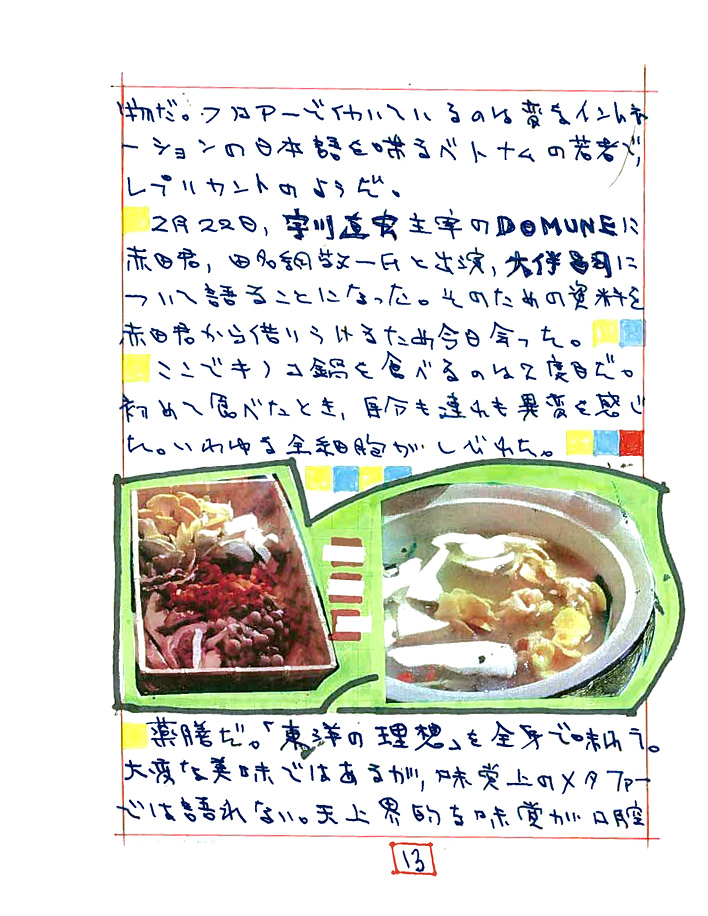 物だ。フロアーで働いているのは変なイントネ
ーションの日本語を喋るベトナムの若者で、
レプリカントのようだ。
2月22日、宇川直宏主宰のDOMUNEに
赤田君、田名網敬一氏と出演、大伴昌司に
ついて語ることになった。そのための資料を
赤田君から借りうけるため今日会った。
ここでキノコ鍋を食べるのは2度目だ。
初めて食べたとき、自分も連れも異変を感じ
た。いわゆる全細胞がしびれた。
薬膳だ。「東洋の理想」を全身で味わう。
大変な美味ではあるが、味覚上のメタファー
では語れない。天上界的な味覚が口腔
13